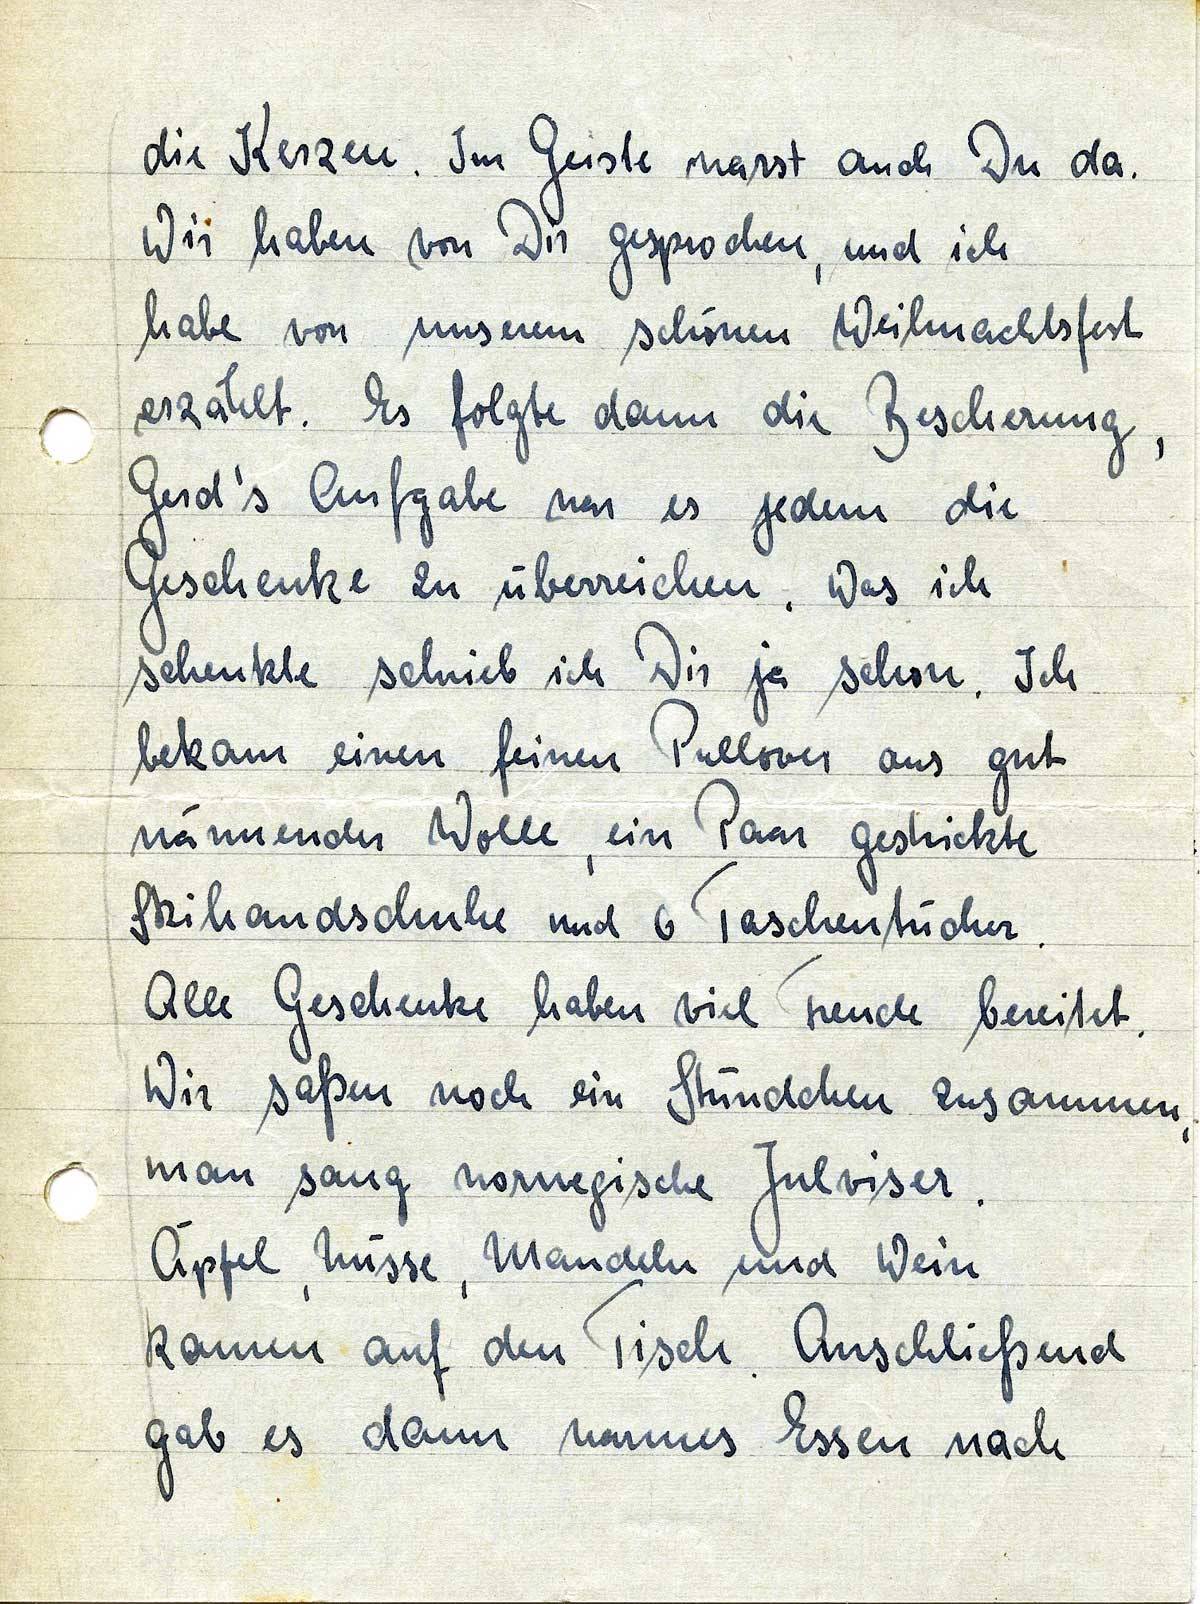 die Kerzen. Im Geiste warst auch Du da.
Wir haben von Dir gesprochen, und ich
habe von unserem schönen Weihnachtsfest
erzählt. Es folgte dann die Bescherung,
Gerd's Aufgabe war es jedem die
Geschenke zu überreichen. Was ich
schenkte schrieb ich Dir ja schon. Ich
bekam einen feinen Pullover aus gut
wärmender Wolle, ein Paar gestrickte
Skihandschuhe und 6 Taschentücher.
Alle Geschenke haben viel Freude bereitet.
Wir saßen noch ein Stündchen zusammen,
man sang norwegische Julviser.
Äpfel, Nüsse, Mandeln und Wein
kamen auf den Tisch. Anschließend
gab es dann warmes Essen nach